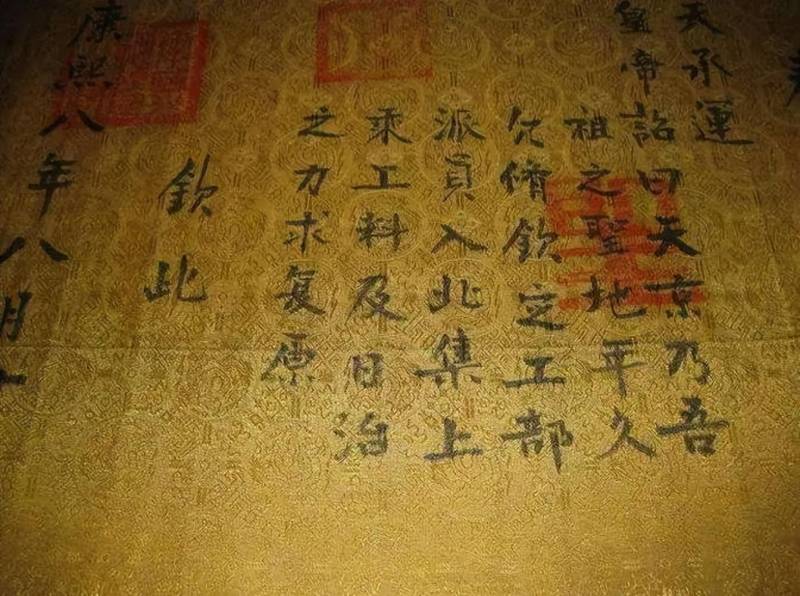 天承運
皇帝詔曰天京乃吾
祖之聖地年久
欠脩欽定工部
派員入北集上
乘工料及日治
之力求复原
欽此
康熙八年八月